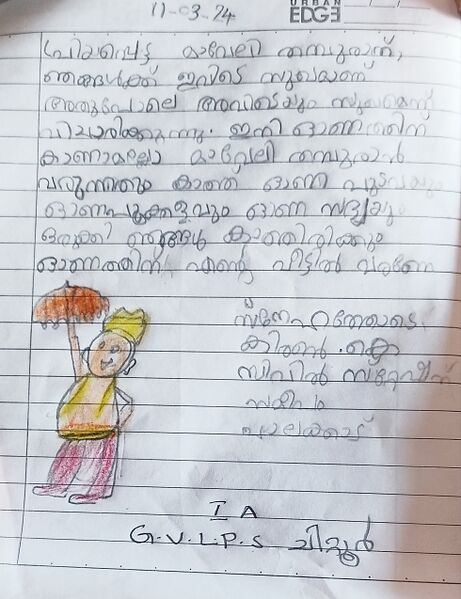 11-03-24
URBAN
EDGE
പ്രിയപ്പെട്ട മാവേലി തമ്പുരാന്,
ഞങ്ങൾക്ക് ഇവിടെ സുഖമാണ്
അതുപോലെ അവിടെയും സുഖമെന്ന്
വിചാരിക്കുന്നു. ഇനി ഓണത്തിന്
കാണാമല്ലോ മാവേലി തമ്പുരാൻ
വരുന്നതും കാത്ത് ഓണ പുടവയും
ഓണപൂക്കളവും ഓണ സദ്യയും
ഒരുക്കി ഞങ്ങൾ കാത്തിരിക്കും
ഓണത്തിന് എന്റെ വീട്ടിൽ വരണേ
സ്നേഹത്തോടെ
കിരൺ .കെ
സിവിൽ സ്റ്റേഷന്
സമീപം
പാലക്കാട്
I A
G.V.L.P.S ചിറ്റൂർ